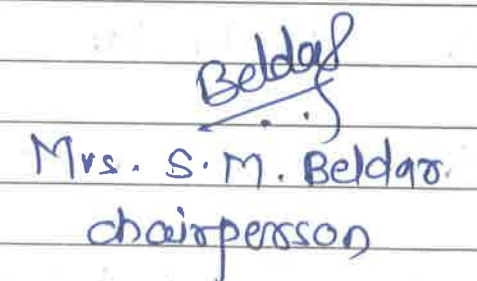 Beldar
Mrs. S.M. Beldar.
chairperson